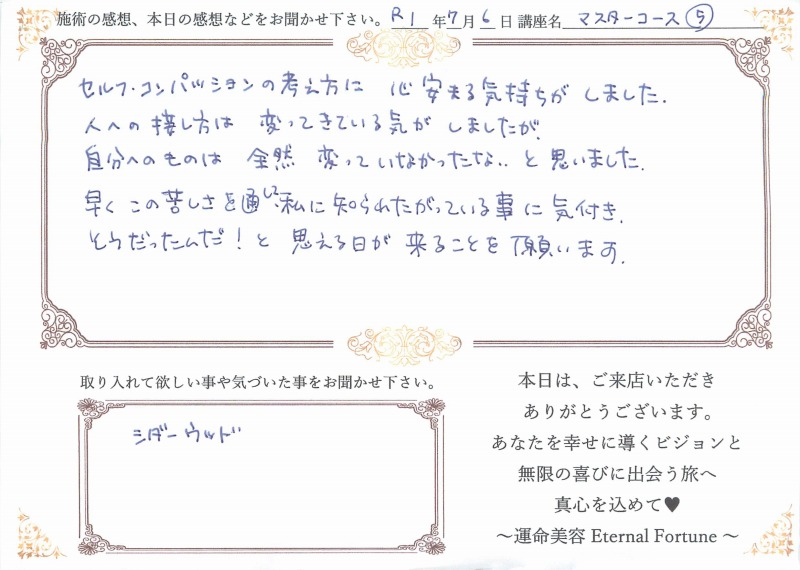 施術の感想、本日の感想などをお聞かせ下さい。R1年7月6日 講座名 マスターコース⑤
セルフ・コンパッションの考え方に 心安まる気持ちが しました.
人への接し方は 変ってきている気が しましたが.
自分へのものは 全然 変っていなかったな.. と思いました.
早く この苦しさを通して.私に知られたがっている事に気付き.
そうだったんだ!と 思える日が 来ることを願います.
取り入れて欲しい事や気づいた事をお聞かせ下さい。
シダーウッド
本日は、ご来店いただき
ありがとうございます。
あなたを幸せに導くビジョンと
無限の喜びに出会う旅へ
真心を込めて♥
～運命美容 Eternal Fortune～